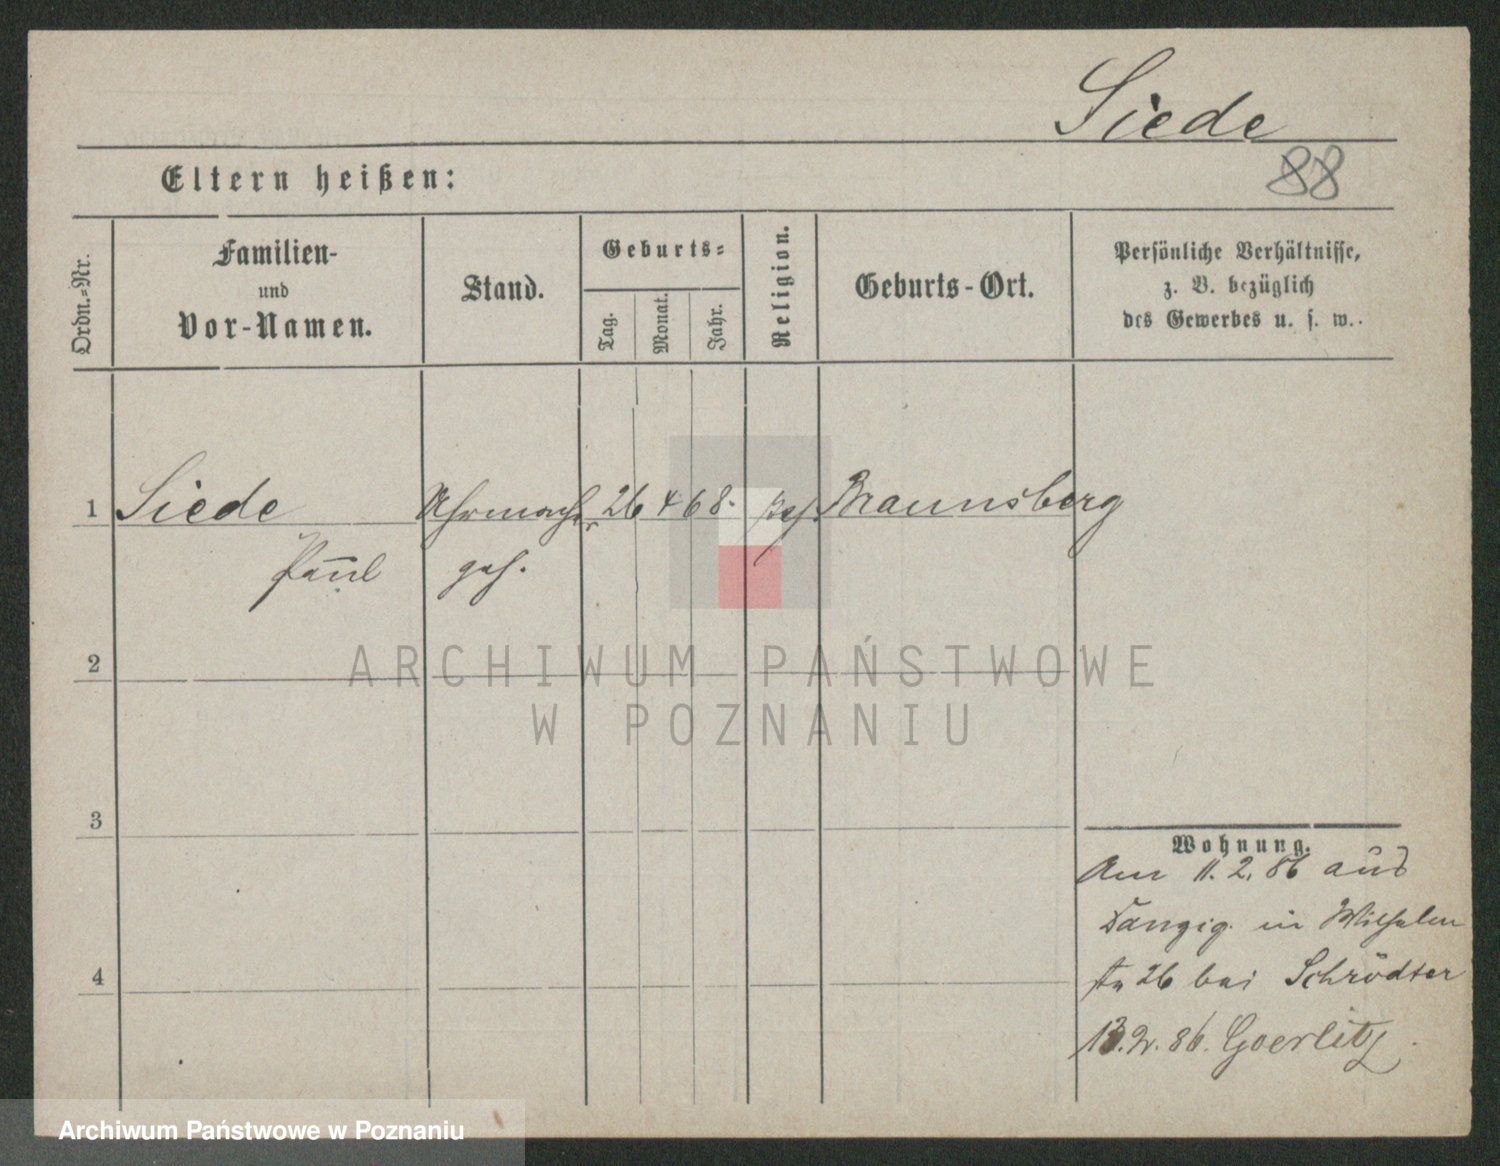 Siede
88
Eltern heißen:
Ordn.=Nr.
Familien-
und
Vor-Namen.
Stand.
Geburts=
Tag.
Monat.
Jahr.
Religion.
Geburts-Ort.
Persönliche Verhältnisse,
z. B. bezüglich
des Gewerbes u. s. w..
1 Siede Uhrmacher 26 4 68. Braunsberg
Paul geh.
2
ARCHIWUM PAŃSTWOWE
W POZNANIU
3
Wohnung.
Am 11. 2. 86 aus
Danzig in Wilhelm
str 26 bei Schrödter
13. 2. 86. Goerlitz.
4
Archiwum Państwowe w Poznaniu